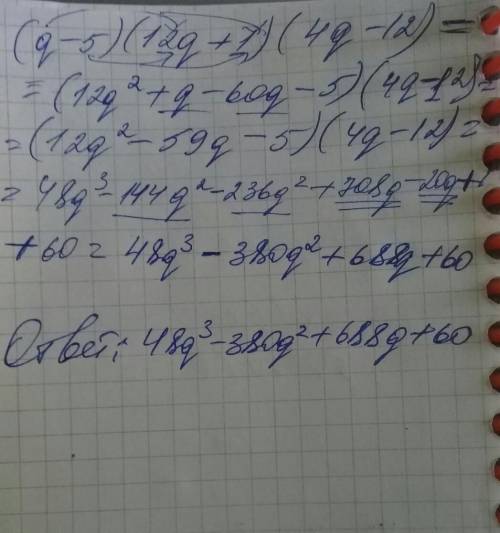 (q-5)(12q+1)(4q-12)=
=(12q²+q-60q-5)(4q-12)=
=(12q²-59q-5)(4q-12)=
=48q³-144q²-236q²+708q-20q+
+60=48q³-380q²+688q+60
Ответ: 48q³-380q²+688q+60